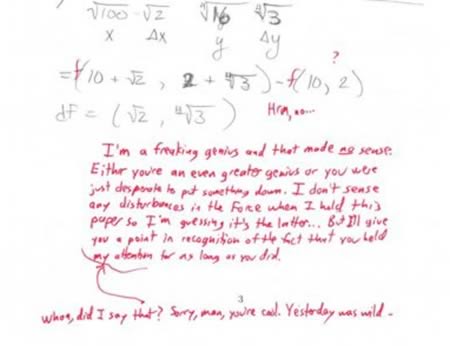 √100 - √2 ∜16 ∜3
x Δx y Δy
?
= f(10 + √2 , 2 + ∜3) - f(10, 2)
df = (√2 , ∜3) Hrm, no...
I'm a freaking genius and that made no sense.
Either you're an even greater genius or you were
just desperate to put something down. I don't sense
any disturbances in the Force when I hold this
paper so I'm guessing it's the latter... But I'll give
you a point in recognition of the fact that you held
my attention for as long as you did.
3
Whoa, did I say that? Sorry, man, you're cool. Yesterday was wild -